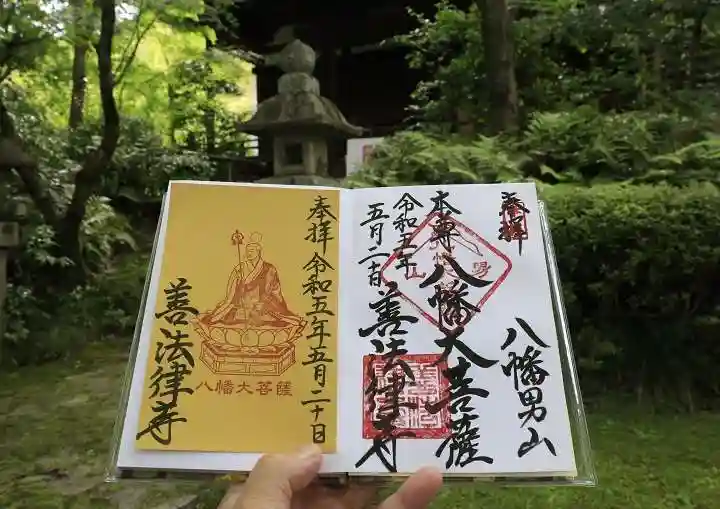 奉拝
八幡男山
本尊
八幡大菩薩
令和五年
五月二十日
善法律寺
奉拝 令和五年五月二十日
八幡大菩薩
善法律寺